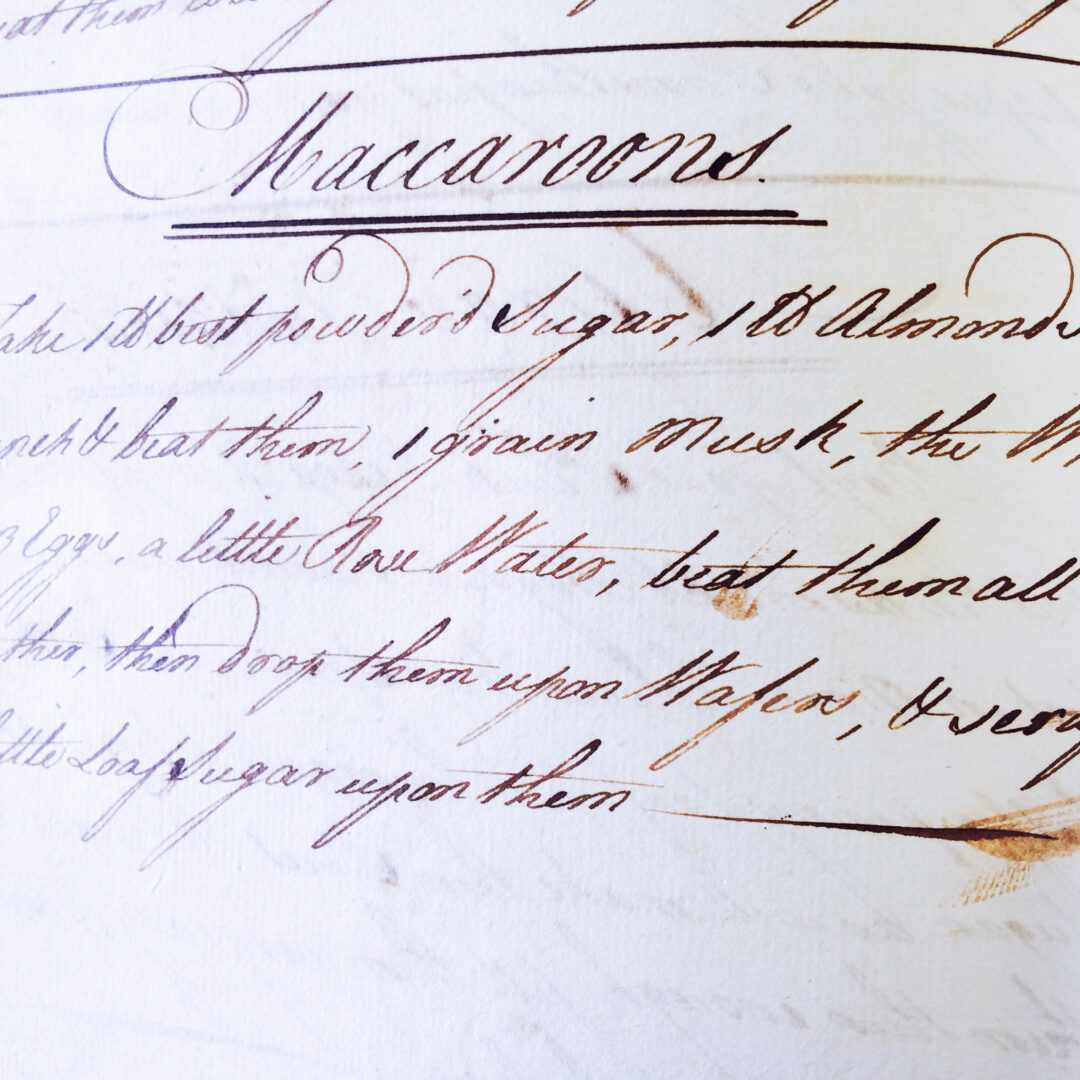 beat them
Maccaroons.
Take 1 lb best powder'd Sugar, 1 lb Almonds
& beat them, 1 grain Musk, the
3 Eggs, a little Rose Water, beat them all
ther, then drop them upon Wafers, & serap
little Loaf Sugar upon them